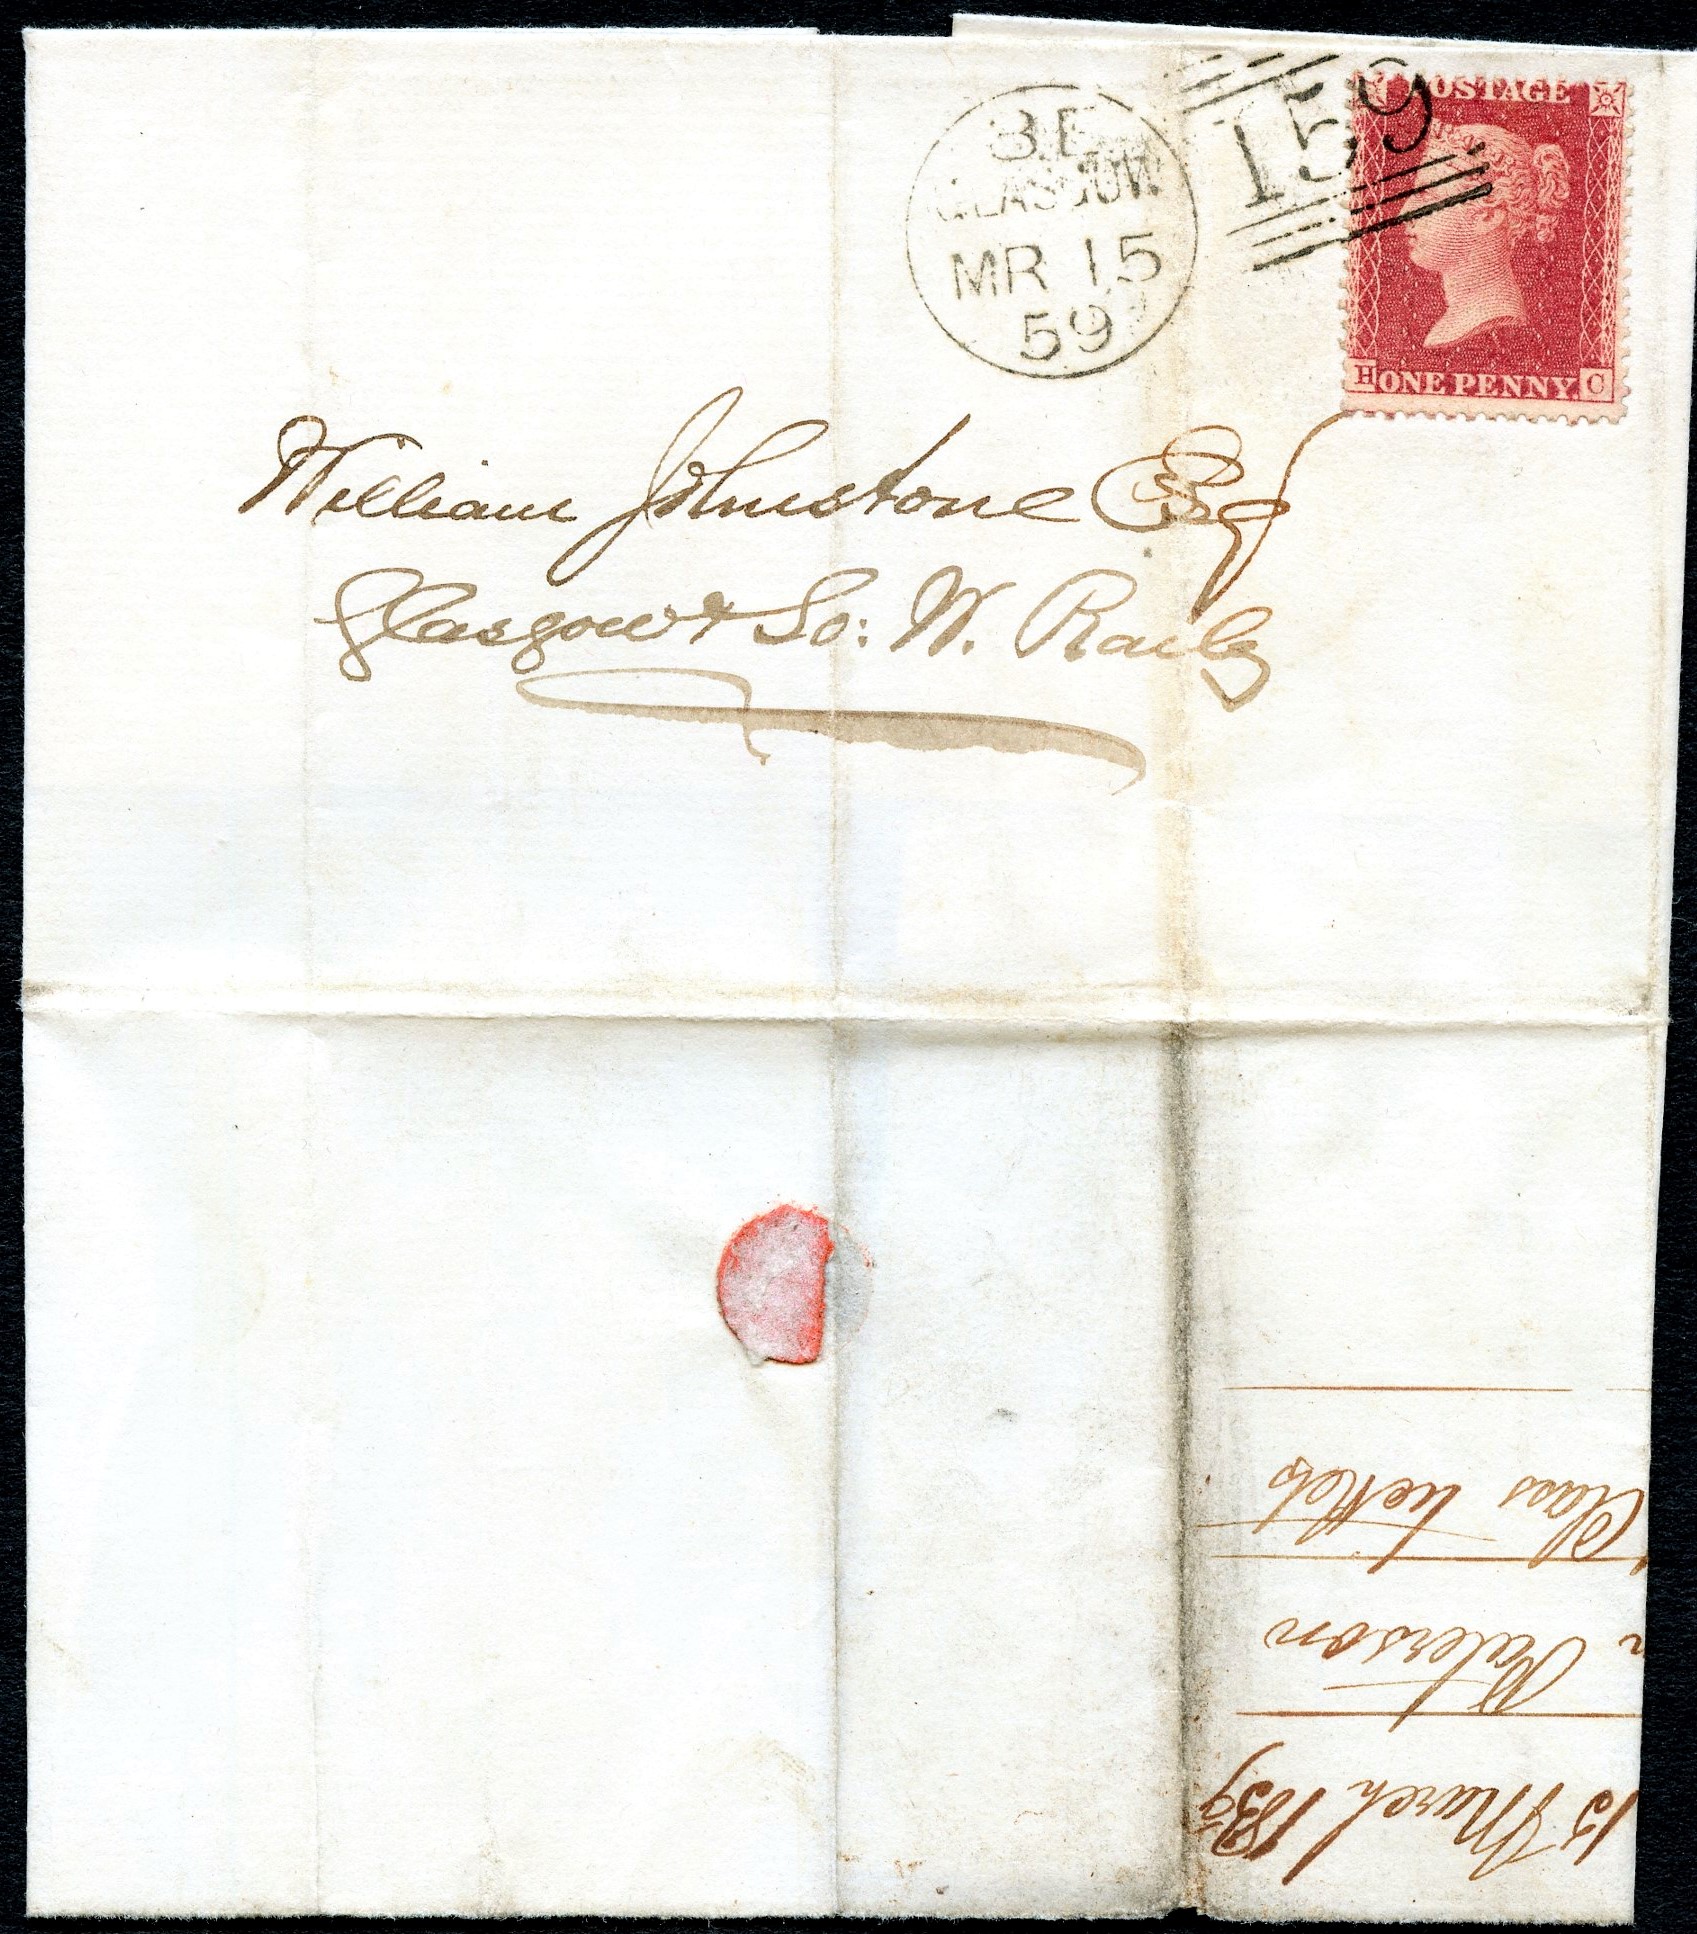 3 E
GLASGOW
MR 15
59
159
POSTAGE
H ONE PENNY. C
William Johnstone Esq
Glasgow & So: W. Raily
15 March 1859
Paterson
Class tickets